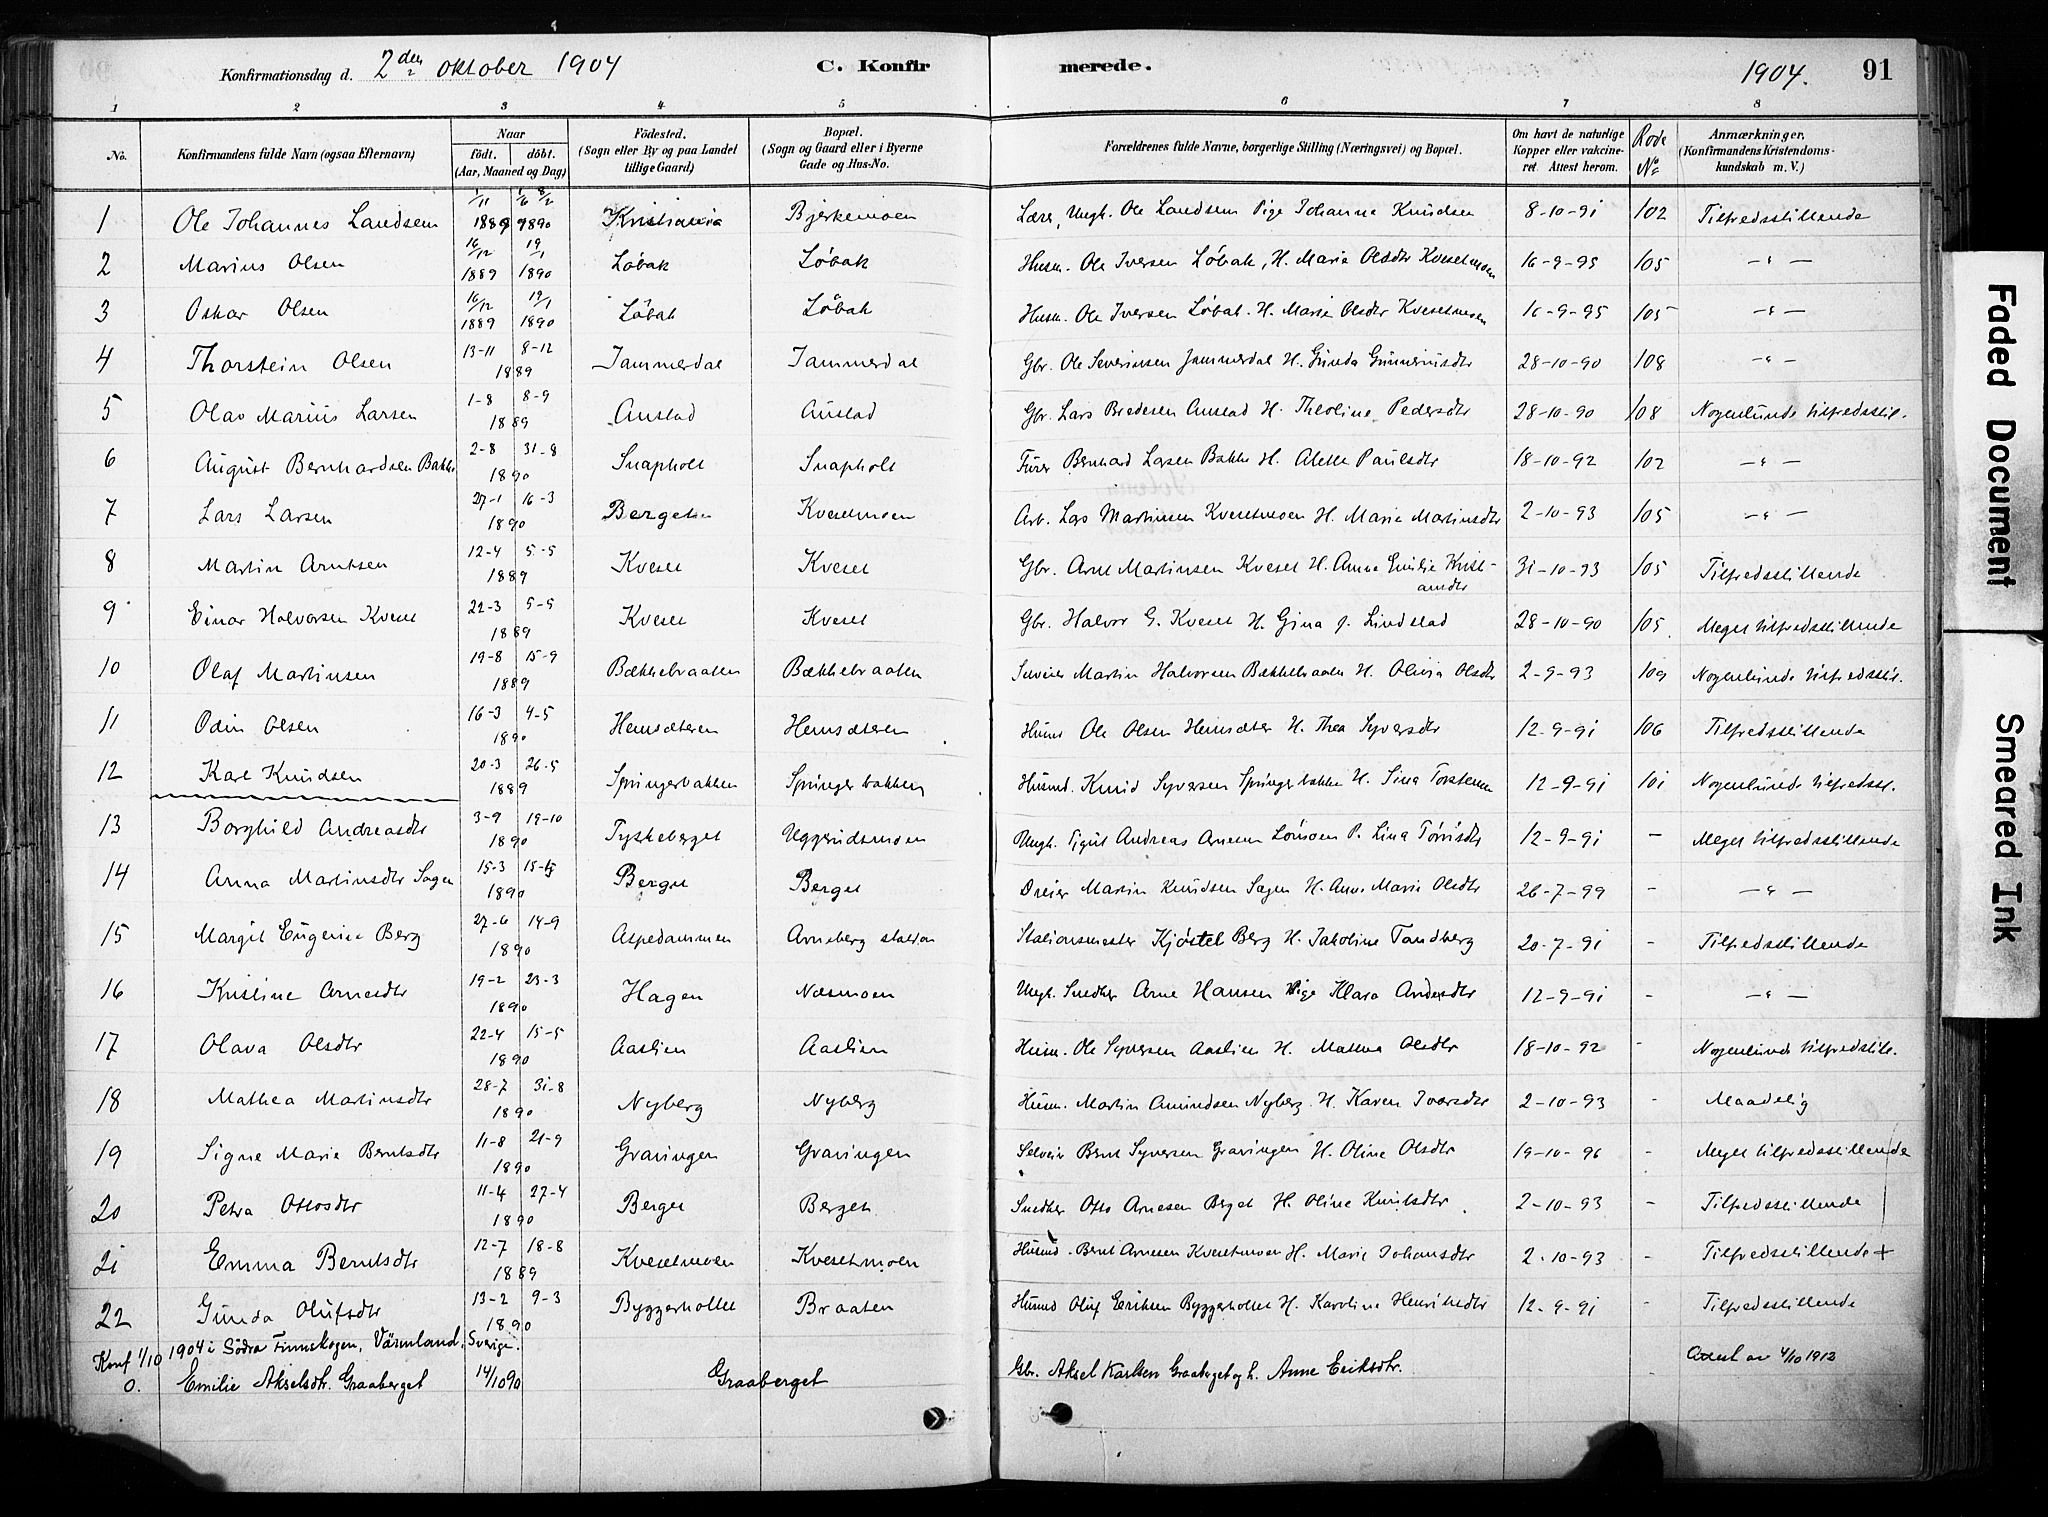 Konfirmationsdag d. 2den oktober 1904 C. Konfirmerede. 1904. 91
1 2 3 4 5 6 7 8
No. Konfirmandens fulde Navn (ogsaa Efternavn) Naar födt. döbt. (Aar, Maaned og Dag) Födested. (Sogn eller By og paa Landet tillige Gaard) Bopæl. (Sogn og Gaard eller i Byerne Gade og Hus-No. Forældrenes fulde Navne, borgerlige Stilling (Næringsvei) og Bopæl. Om havt de naturlige Kopper eller vakcineret. Attest herom. Rode No Anmærkninger, (Konfirmandens Kristendomskundskab m. V.)
1 Ole Johannes Landsem 1/11 1889 1/6 8/2 1890 Kristiania Bjerkemoen Lærer, Ungk. Ole Landsem Pige Johanne Knudsen 8-10-91 102 Tilfredsstillende
2 Marius Olsen 16/12 1889 19/1 1890 Löbak Löbak Husm. Ole Iversen Löbak, H. Marie Olsdtr Kvesetmoen 16-9-95 105 -"-
3 Oskar Olsen 16/12 1889 19/1 1890 Löbak Löbak Husm. Ole Iversen Löbak. H. Marie Olsdtr Kvesetmoen 16-9-95 105 -"-
4 Thorstein Olsen 13-11 8-12 1889 Jammerdal Jammerdal Gbr. Ole Severinsen Jammerdal H. Gunda Gunneriusdtr 28-10-90 108 -"-
5 Olav Marius Larsen 1-8 8-9 1889 Austad Austad Gbr. Lars Bredesen Austad H. Theoline Pedersdtr 28-10-90 108 Nogenlunde tilfredsstil.
6 August Bernhardsen Bakke 2-8 31-8 1890 Snapholt Snapholt Furer Bernhard Larsen Bakke H. Alette Paulsdtr 18-10-92 102 -"-
7 Lars Larsen 27-1 16-3 1890 Berget Kvesetmoen Arb. Lars Martinsen Kvesetmoen H. Marie Martinsdtr 2-10-93 105 -"-
8 Martin Arntsen 12-4 5-5 1889 Kveset Kveset Gbr. Arnt Martinsen Kveset H. Anne Emilie Kristiansdtr 31-10-93 105 Tilfredsstillende
9 Einar Halvorsen Kveset 22-3 5-5 1889 Kveset Kveset Gbr. Halvor G. Kveset H. Gina J. Lindstad 28-10-90 105 Meget tilfredsstillende
10 Olaf Martinsen 19-8 15-9 1889 Bækkebraaten Bækkebraaten Selveier Martin Halvorsen Bækkebraaten H. Olivia Olsdtr 2-9-93 109 Nogenlunde tilfredsstil.
11 Odin Olsen 16-3 4-5 1890 Hemsæteren Hemsæteren Husmd Ole Olsen Hemsæter H. Thea Syversdtr 12-9-91 106 Tilfredsstillende
12 Karl Knudsen 20-3 26-5 1889 Springerbakken Springerbakken Husmd. Knud Syversen Springerbakke H. Sina Torstensen 12-9-91 101 Nogenlunde tilfredsst.
13 Borghild Andreasdtr 3-9 19-10 1890 Tyskeberget Uggerudsmoen Ungk. Andreas Arnesen P. Lina 12-9-91 - Meget tilfredsstillende
14 Anna Martinsdtr Sagen 15-3 15-5 1890 Berget Berget Dreier Martin Knudsen Sagen H. Anne Marie Olsdtr 26-7-99 - -"-
15 Margit Eugenie Berg 27-6 14-9 1890 Aspedammen Arneberg station Stationsmester Kjöstel Berg H. Jakoline Tandberg 20-7-91 - Tilfredsstillende
16 Kristine Arnesdtr 19-2 23-3 1890 Hagen Næsmoen Ungk. Snedker Arne Hansen Pige Klara Andersdtr 12-9-91 - -"-
17 Olava Olsdtr 22-4 15-5 1890 Aaslien Aaslien Husm. Ole Syversen Aaslien H. Mathea Olsdtr 18-10-92 - Nogenlunde tilfredsstil.
18 Mathea Martinsdtr 28-7 31-8 1890 Nyberg Nyberg Husm. Martin Amundsen Nyberg H. Karen Ivarsdtr 2-10-93 - Maadelig
19 Signe Marie Berntsdtr 11-8 21-9 1890 Gravingen Gravingen Selveier Bernt Syversen Gravingen H. Oline Olsdtr 19-10-96 - Meget tilfredsstillende
20 Petra Ottosdtr 11-4 27-4 1890 Berget Berget Snedker Otto Arnesen Berget H. Oline Knutsdtr 2-10-93 - Tilfredsstillende
21 Emma Berntsdtr 12-7 18-8 1889 Kvesetmoen Kvesetmoen Husmd. Bernt Arnesen Kvesetmoen H. Marie Johansdtr 2-10-93 - Tilfredsstillende +
22 Gunda Olufsdtr 13-2 9-3 1890 Byggerholtet Braaten Husmd Oluf Eriksen Byggerholtet H. Karoline Henriksdtr 12-9-91 - Tilfredsstillende
Konf 1/10 1904 i Södra Finnskogen, Värmland, Sverige.
0. Emilie Akselsdtr. Graaberget 14/10 90 Graaberget Gbr. Aksel Karlsen Graaberget og h. Anne Eriksdtr. Attest av 4/10 1912
Faded Document
Smeared Ink